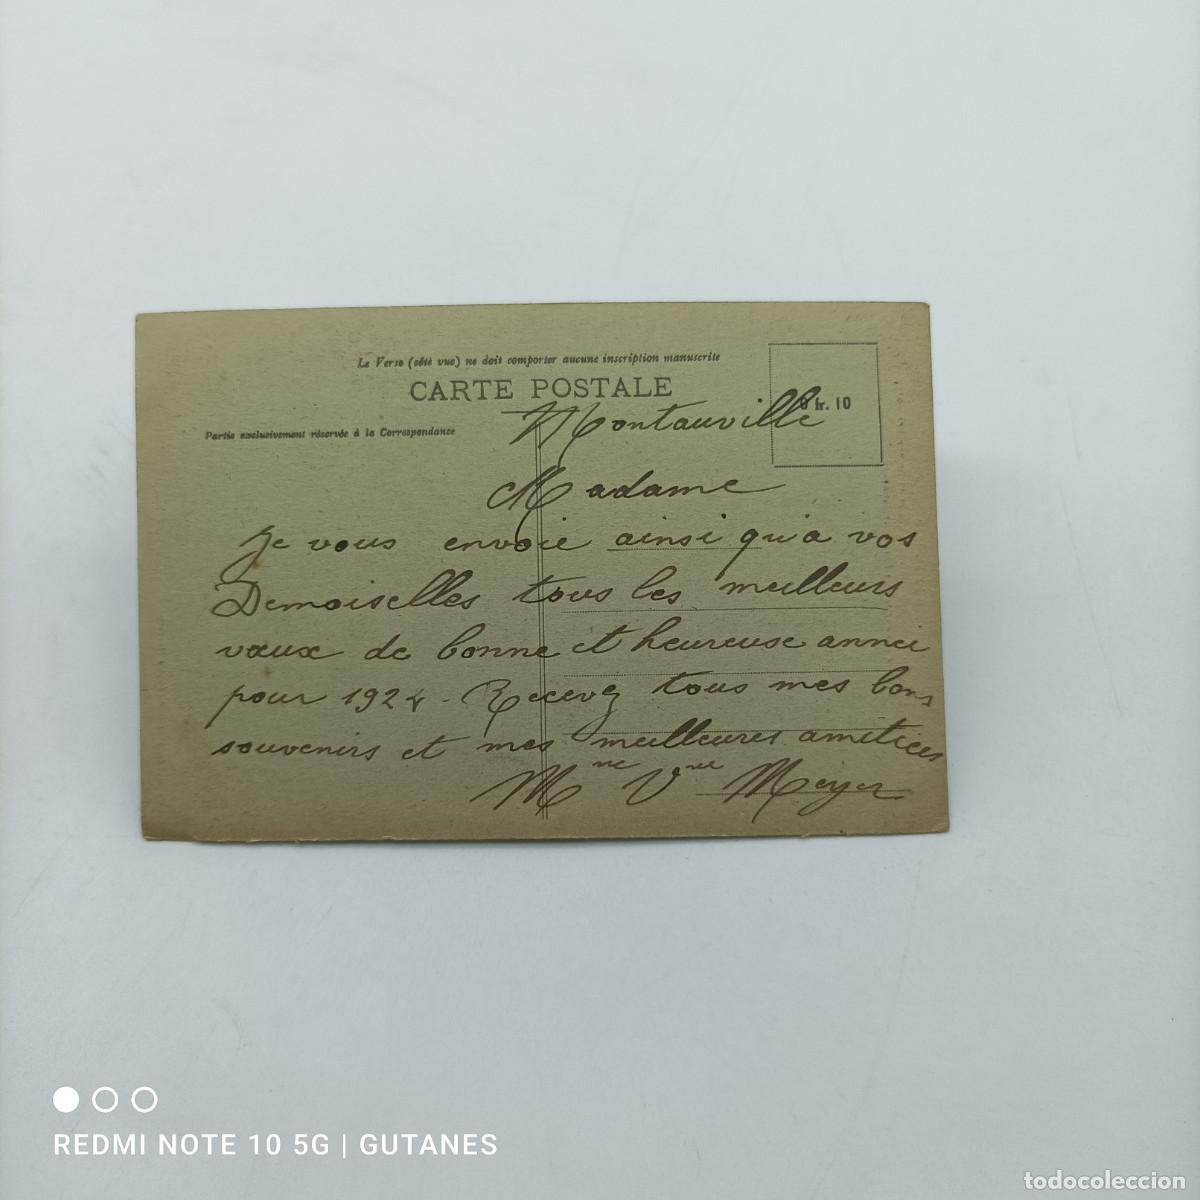 Le Verso (côté vue) ne doit comporter aucune inscription manuscrite
CARTE POSTALE
0 fr. 10
Partie exclusivement réservée à la Correspondance
Montauville
Madame
Je vous envoie ainsi qu'a vos
Demoiselles tous les meilleurs
vœux de bonne et heureuse année
pour 1924 - Recevez tous mes bons
souvenirs et mes meilleures amitiées
Mme Vve Meyer
REDMI NOTE 10 5G | GUTANES
todocoleccion